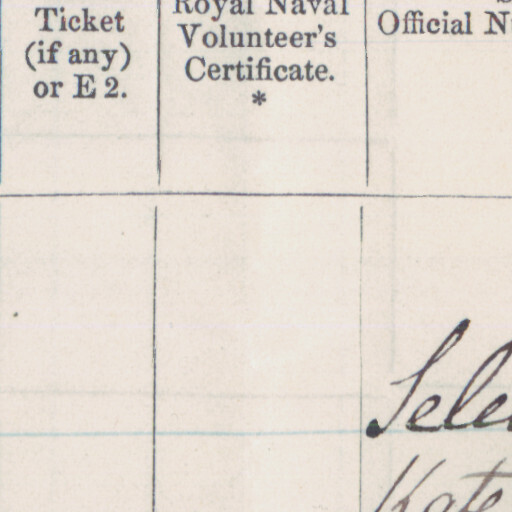 Ticket
(if any)
or E 2.
Royal Naval
Volunteer's
Certificate.
*
Official
Kate